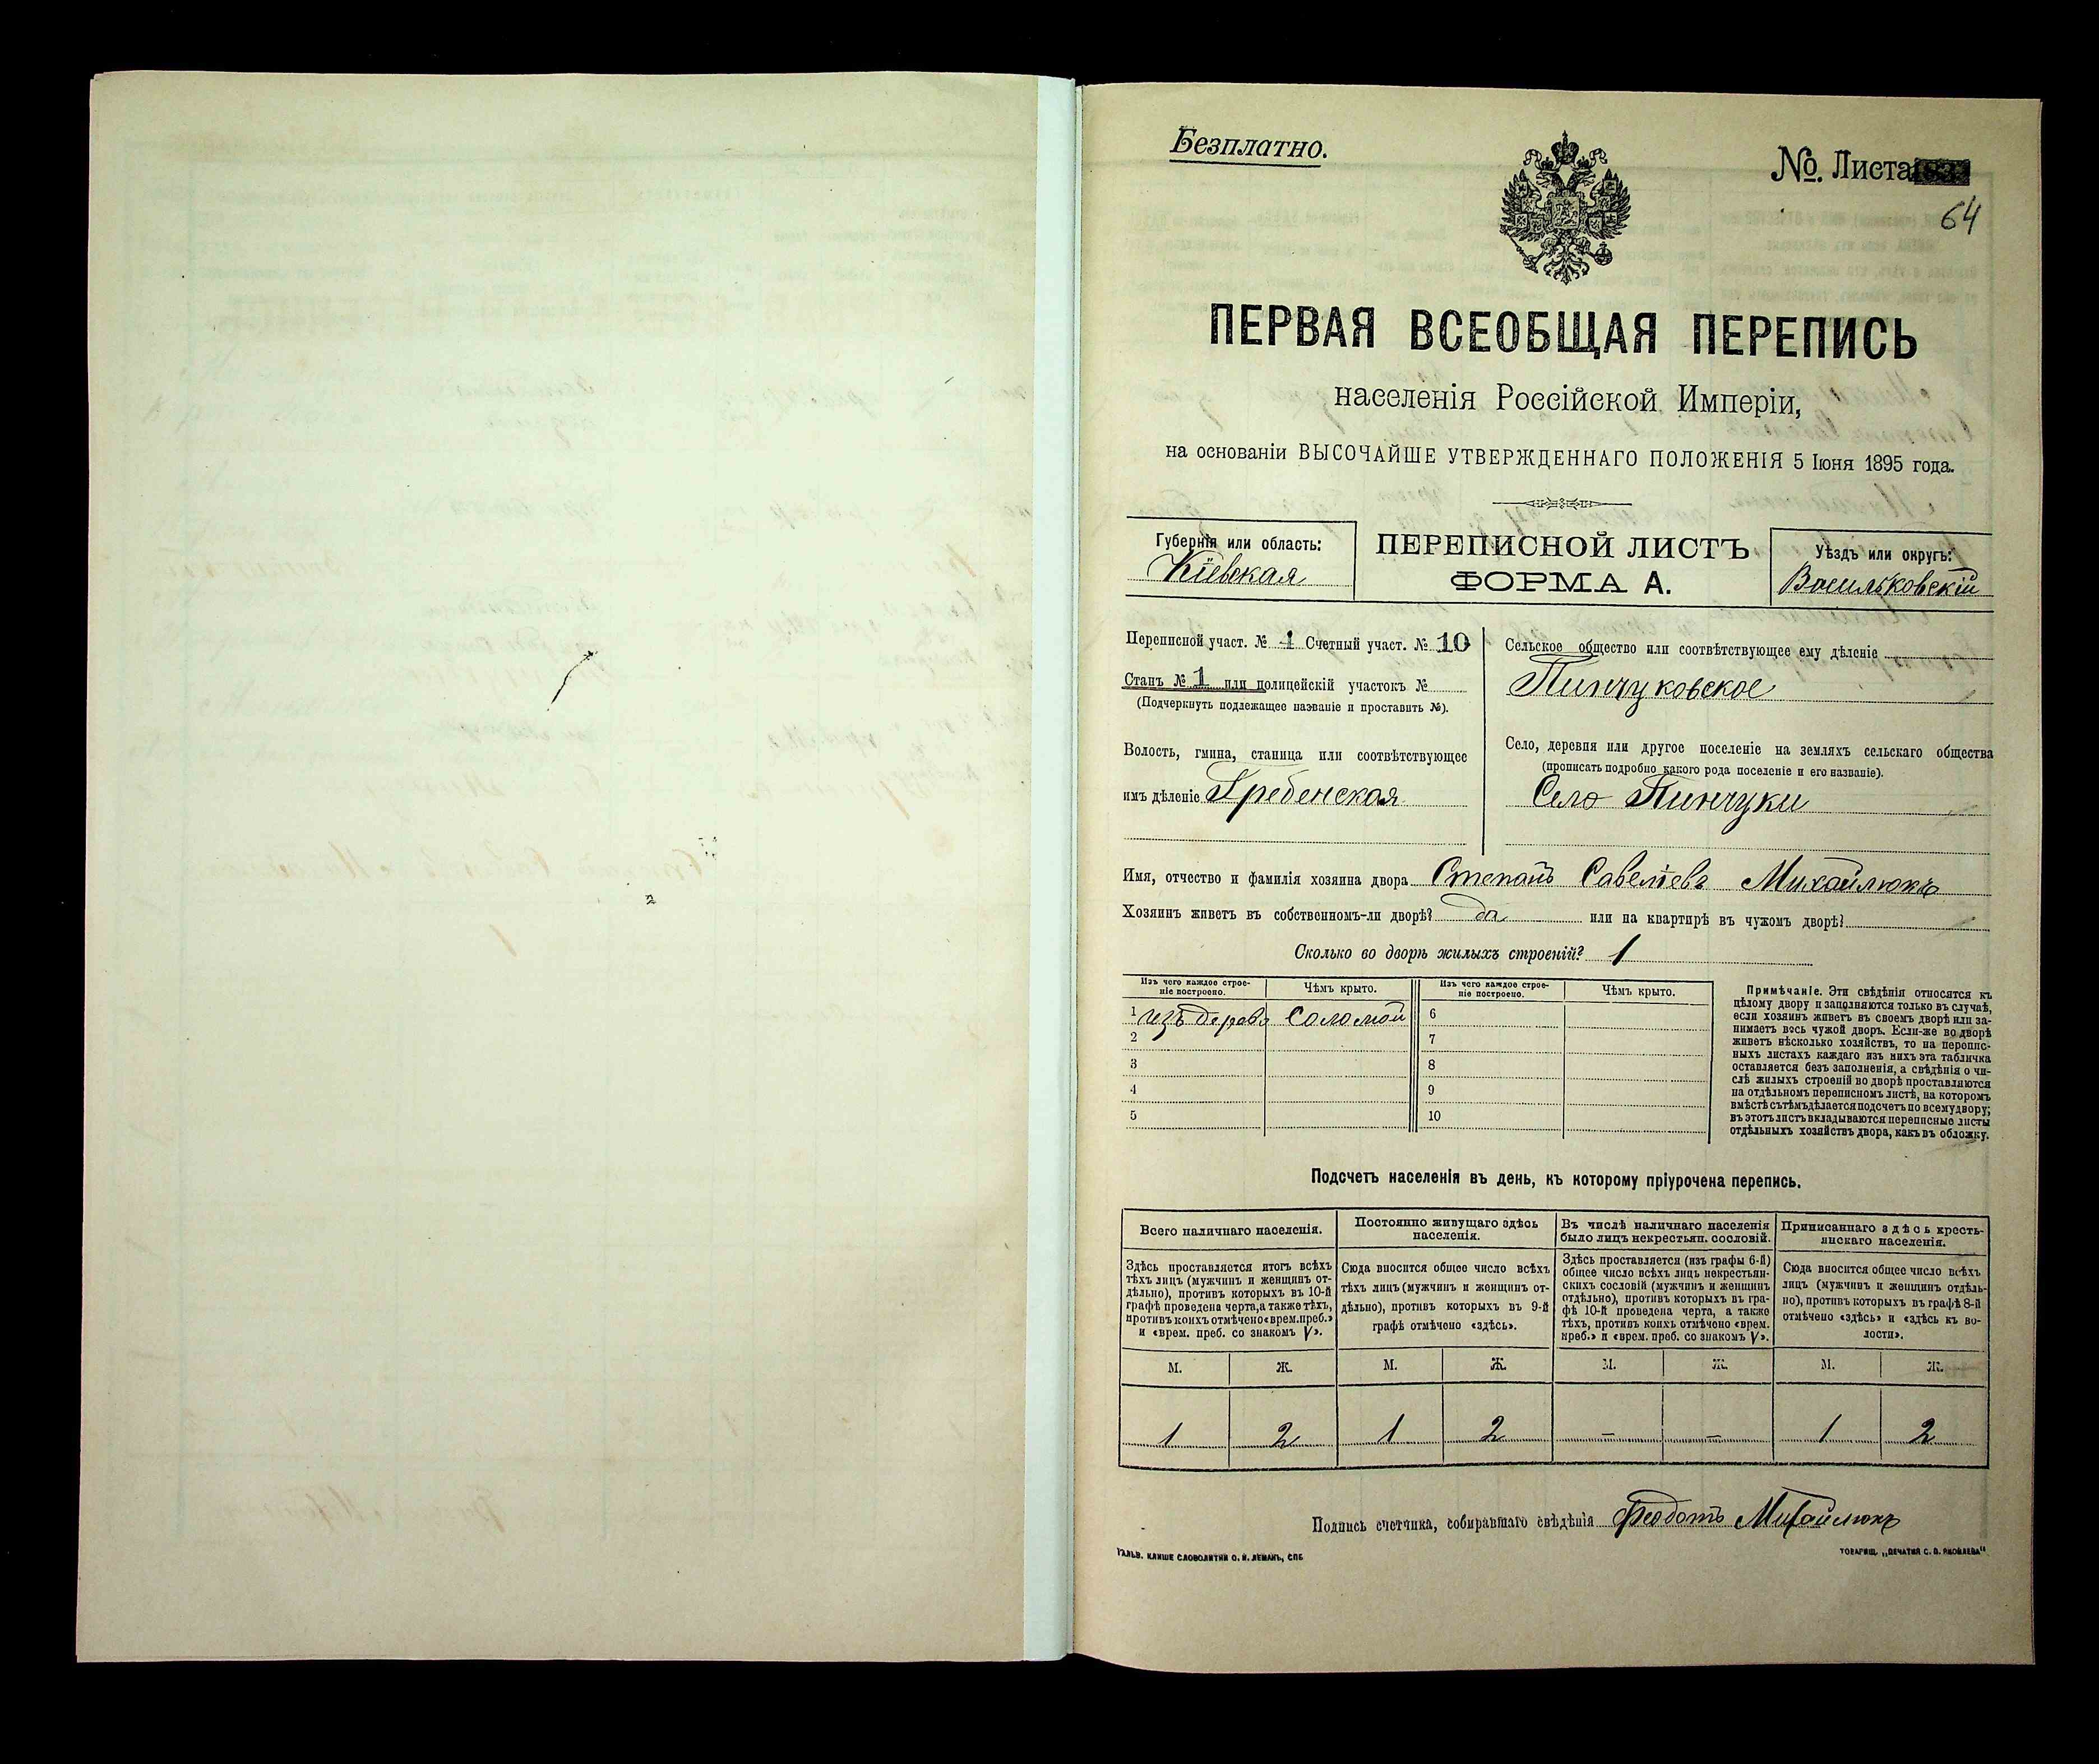 Безплатно.
№. Листа
64
ПЕРВАЯ ВСЕОБЩАЯ ПЕРЕПИСЬ
населенія Россійской Имперіи,
на основаніи ВЫСОЧАЙШЕ УТВЕРЖДЕННАГО ПОЛОЖЕНІЯ 5 Іюня 1895 года.
Губернія или область:
Кіевская
ПЕРЕПИСНОЙ ЛИСТЪ
ФОРМА А.
Уѣздъ или округъ:
Васильковскій
Переписной участ. № 1 Счетный участ. № 10
Станъ № 1 или полицейскій участокъ №
(Подчеркнуть подлежащее названіе и проставить №).
Волость, гмина, станица или соотвѣтствующее
имъ дѣленіе Гребенская
Сельское общество или соотвѣтствующее ему дѣленіе
Пинчуковское
Село, деревня или другое поселеніе на земляхъ сельскаго общества
(прописать подробно какого рода поселеніе и его названіе).
Село Пинчуки
Имя, отчество и фамилія хозяина двора Степанъ Савеліевъ Михайлюкъ
Хозяинъ живетъ въ собственномъ-ли дворѣ? да или на квартирѣ въ чужомъ дворѣ?
Сколько во дворѣ жилыхъ строеній? 1
Изъ чего каждое строе-
ніе построено.
Чѣмъ крыто.
Изъ чего каждое строе-
ніе построено.
Чѣмъ крыто.
1 изъ дерева Соломой
2
3
4
5
6
7
8
9
10
Примѣчаніе. Эти свѣдѣнія относятся къ
цѣлому двору и заполняются только въ случаѣ,
если хозяинъ живетъ въ своемъ дворѣ или за-
нимаетъ весь чужой дворъ. Если-же во дворѣ
живетъ нѣсколько хозяйствъ, то на перепис-
ныхъ листахъ каждаго изъ нихъ эта табличка
оставляется безъ заполненія, а свѣдѣнія о чи-
слѣ жилыхъ строеній во дворѣ проставляются
на отдѣльномъ переписномъ листѣ, на которомъ
вмѣстѣ съ тѣмъ дѣлается подсчетъ по всему двору;
въ этотъ листъ вкладываются переписные листы
отдѣльныхъ хозяйствъ двора, какъ въ обложку.
Подсчетъ населенія въ день, къ которому пріурочена перепись.
Всего наличнаго населенія.
Здѣсь проставляется итогъ всѣхъ
тѣхъ лицъ (мужчинъ и женщинъ от-
дѣльно), противъ которыхъ въ 10-й
графѣ проведена черта, а также тѣхъ,
противъ коихъ отмѣчено «врем. преб.»
и «врем. преб. со знакомъ V».
Постоянно живущаго здѣсь
населенія.
Сюда вносится общее число всѣхъ
тѣхъ лицъ (мужчинъ и женщинъ от-
дѣльно), противъ которыхъ въ 9-й
графѣ отмѣчено «здѣсь».
Въ числѣ наличнаго населенія
было лицъ некрестьян. сословій.
Здѣсь проставляется (изъ графы 6-й)
общее число всѣхъ лицъ некрестьян-
скихъ сословій (мужчинъ и женщинъ
отдѣльно), противъ которыхъ въ гра-
фѣ 10-й проведена черта, а также
тѣхъ, противъ коихъ отмѣчено «врем.
преб.» и «врем. преб. со знакомъ V».
Приписаннаго здѣсь кресть-
янскаго населенія.
Сюда вносится общее число всѣхъ
лицъ (мужчинъ и женщинъ отдѣль-
но), противъ которыхъ въ графѣ 8-й
отмѣчено «здѣсь» и «здѣсь къ во-
лости».
М. Ж. М. Ж. М. Ж. М. Ж.
1 2 1 2 – – 1 2
Подпись счетчика, собиравшаго свѣдѣнія Феодотъ Михайлюкъ
ГАЛЬВ. КЛИШЕ СЛОВОЛИТНИ О. И. ЛЕМАНЪ, СПБ
ТОВАРИЩ. „ПЕЧАТНЯ С. П. ЯКОВЛЕВА“